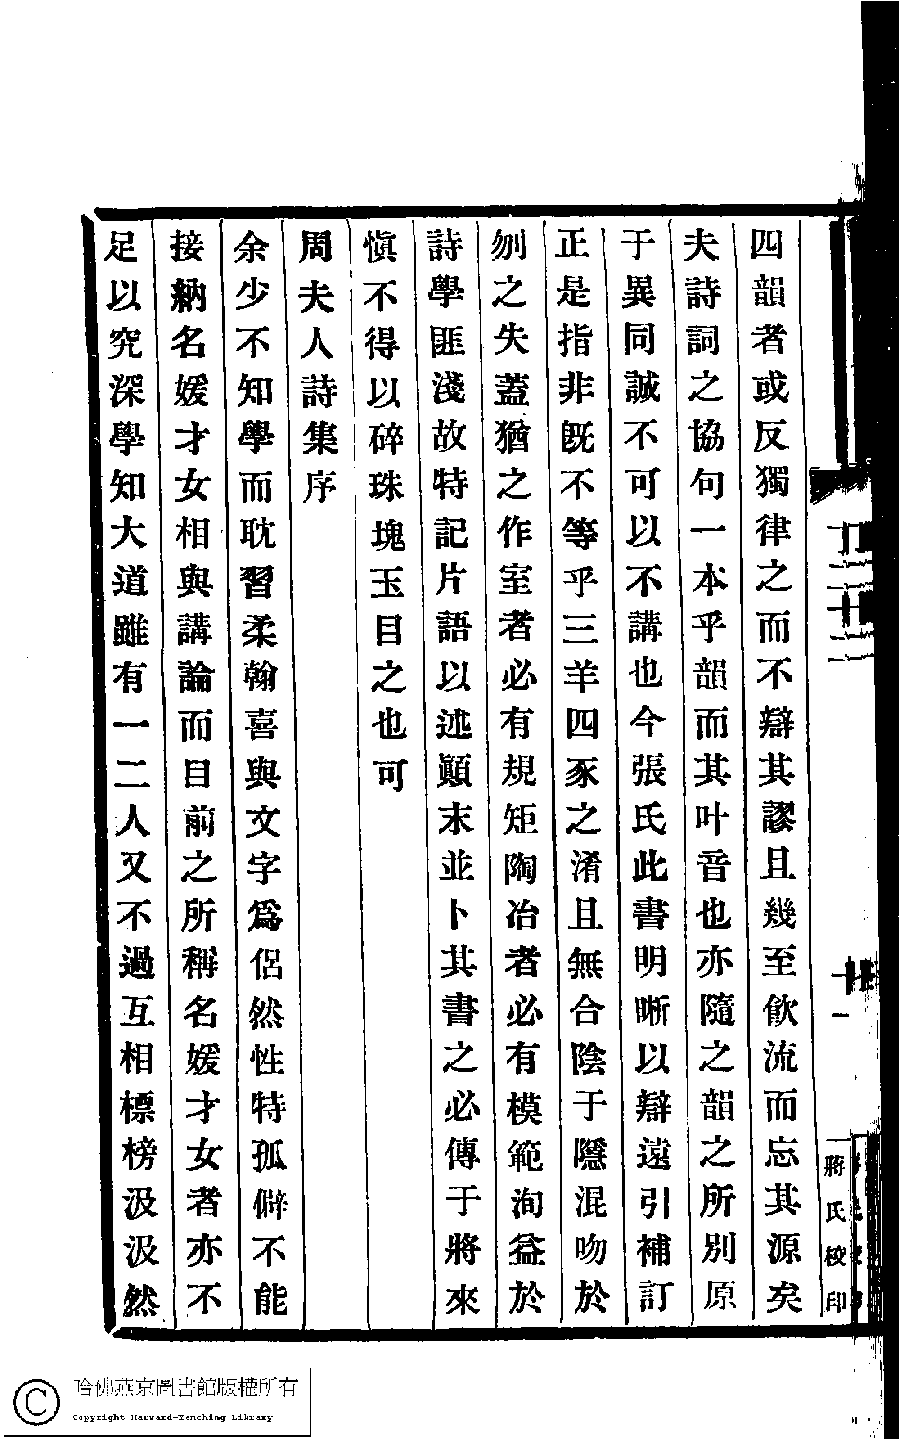 四韻者或反獨律之而不辯其謬且幾至飮流而忘其源矣
夫詩詞之協句一本乎韻而其叶音也亦隨之韻之所別原
于異同誠不可以不講也今張氏此書明晰以辯遠引補訂
正是指非旣不等乎三羊四豕之淆且無合陰于隱混吻於
刎之失蓋猶之作室者必有規矩陶冶者必有模範洵益於
詩學匪淺故特記片語以述顚末並卜其書之必傳于將來
愼不得以碎珠塊玉目之也可
周夫人詩集序
余少不知學而耽習柔翰喜與文字爲侶然性特孤僻不能
接納名媛才女相與講論而目前之所稱名媛才女者亦不
足以究深學知大道雖有一二人又不過互相標榜汲汲然
蔣氏校印
哈佛燕京圖書館版權所有
Copyright Harvard-Yenching Library